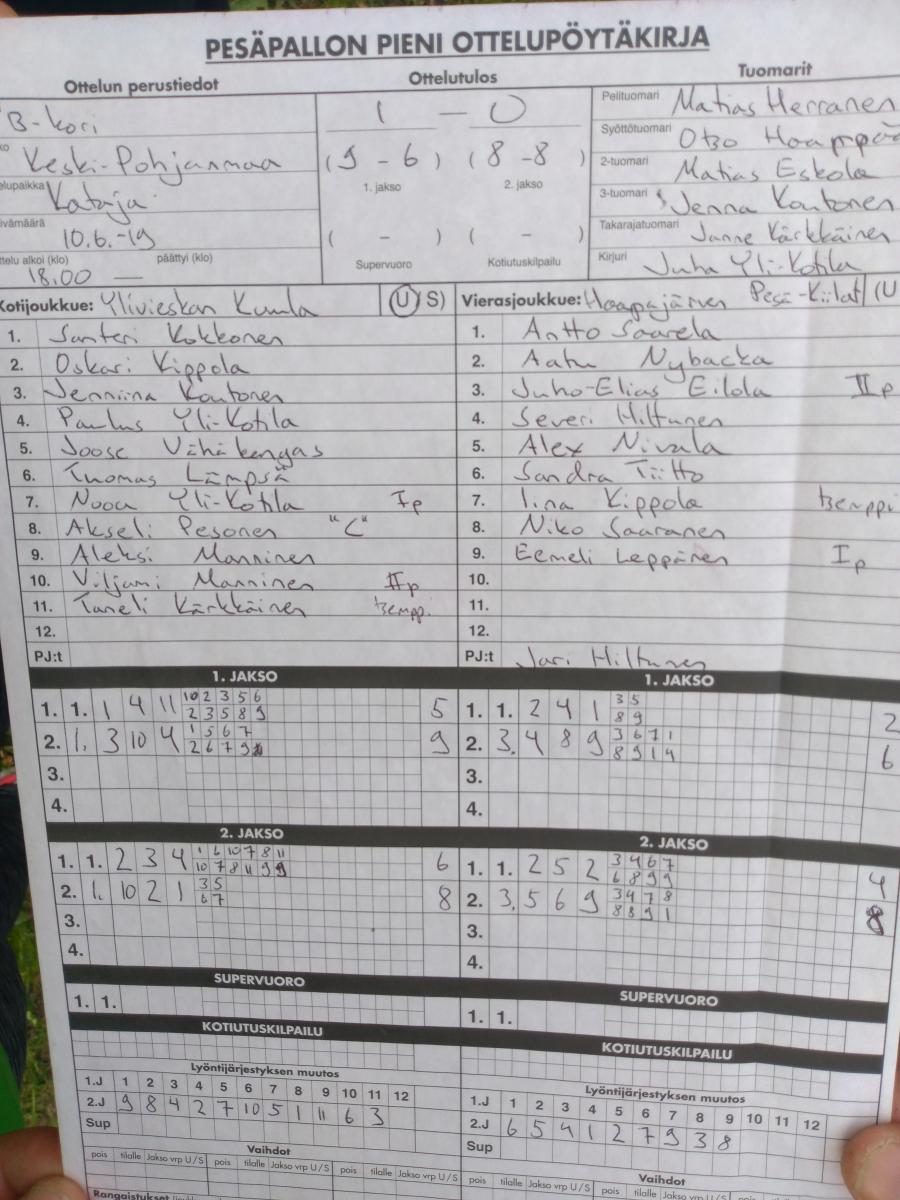 PESÄPALLON PIENI OTTELUPÖYTÄKIRJA
Ottelun perustiedot
B-kori
Keski-Pohjanmaa
Kataja
10.6.-19
päättyi (klo)
18.00 —
Ottelutulos
1 — 0
(9 - 6) (8 - 8)
1. jakso 2. jakso
( - ) ( - )
Supervuoro Kotiutuskilpailu
Tuomarit
Pelituomari Matias Herranen
Syöttötuomari
2-tuomari Matias Eskola
3-tuomari Jenna Koutonen
Takarajatuomari Janne Kärkkäinen
Kirjuri Juha Yli-Kotila
Kotijoukkue: Ylivieskan Kuula (U S)
1. Santeri Kokkonen
2. Oskari Kippola
3. Jenniina Koutonen
4. Paulus Yli-Kotila
5. Joose Vähäkangas
6. Thomas Lämpsä
7. Nooa Yli-Kotila Ip
8. Akseli Pesonen "C"
9. Aleksi Manninen
10. Viljami Manninen IIp
11. Taneli Kärkkäinen
12.
PJ:t
Vierasjoukkue: Haapajärven Pesä-Kiilat (U
1. Antto Saarela
2. Aatu Nybacka
3. Juho-Elias Eilola IIp
4. Severi Hiltunen
5. Alex Nivala
6. Sandra Tiitto
7. Iina Kippola
8. Niko Saaranen
9. Eemeli Leppänen Ip
10.
11.
12.
PJ:t Jari Hiltunen
1. JAKSO
1. 1. 1 4 11 10 2 3 5 6 5
2 3 5 8 9
2. 1. 3 10 4 1 5 6 7 9
2 6 7 9
3.
4.
1. JAKSO
1. 1. 2 4 1 3 5 2
8 9
2. 3. 4 8 9 3 6 7 1 6
8 9 1 4
3.
4.
2. JAKSO
1. 1. 2 3 4 1 6 10 7 8 11 6
10 7 8 11 9 9
2. 1. 10 2 1 3 5 8
6 7
3.
4.
2. JAKSO
1. 1. 2 5 2 3 4 6 7 4
6 8 9 9
2. 3. 5 6 9 3 4 7 8 8
8 8 9 1
3.
4.
SUPERVUORO
1. 1.
SUPERVUORO
1. 1.
KOTIUTUSKILPAILU
KOTIUTUSKILPAILU
Lyöntijärjestyksen muutos
1.J 1 2 3 4 5 6 7 8 9 10 11 12
2.J 9 8 4 2 7 10 5 1 11 6 3
Sup
Lyöntijärjestyksen muutos
1.J 1 2 3 4 5 6 7 8 9 10 11 12
2.J 6 5 4 1 2 7 9 3 8
Sup
Vaihdot
pois tilalle Jakso vrp U/S pois tilalle Jakso vrp U/S pois tilalle Jakso vrp U/S
Vaihdot
pois tilalle Jakso vrp U/S pois tilalle Jakso vrp U/S pois tilalle Jakso vrp U/S
Rangaistukset